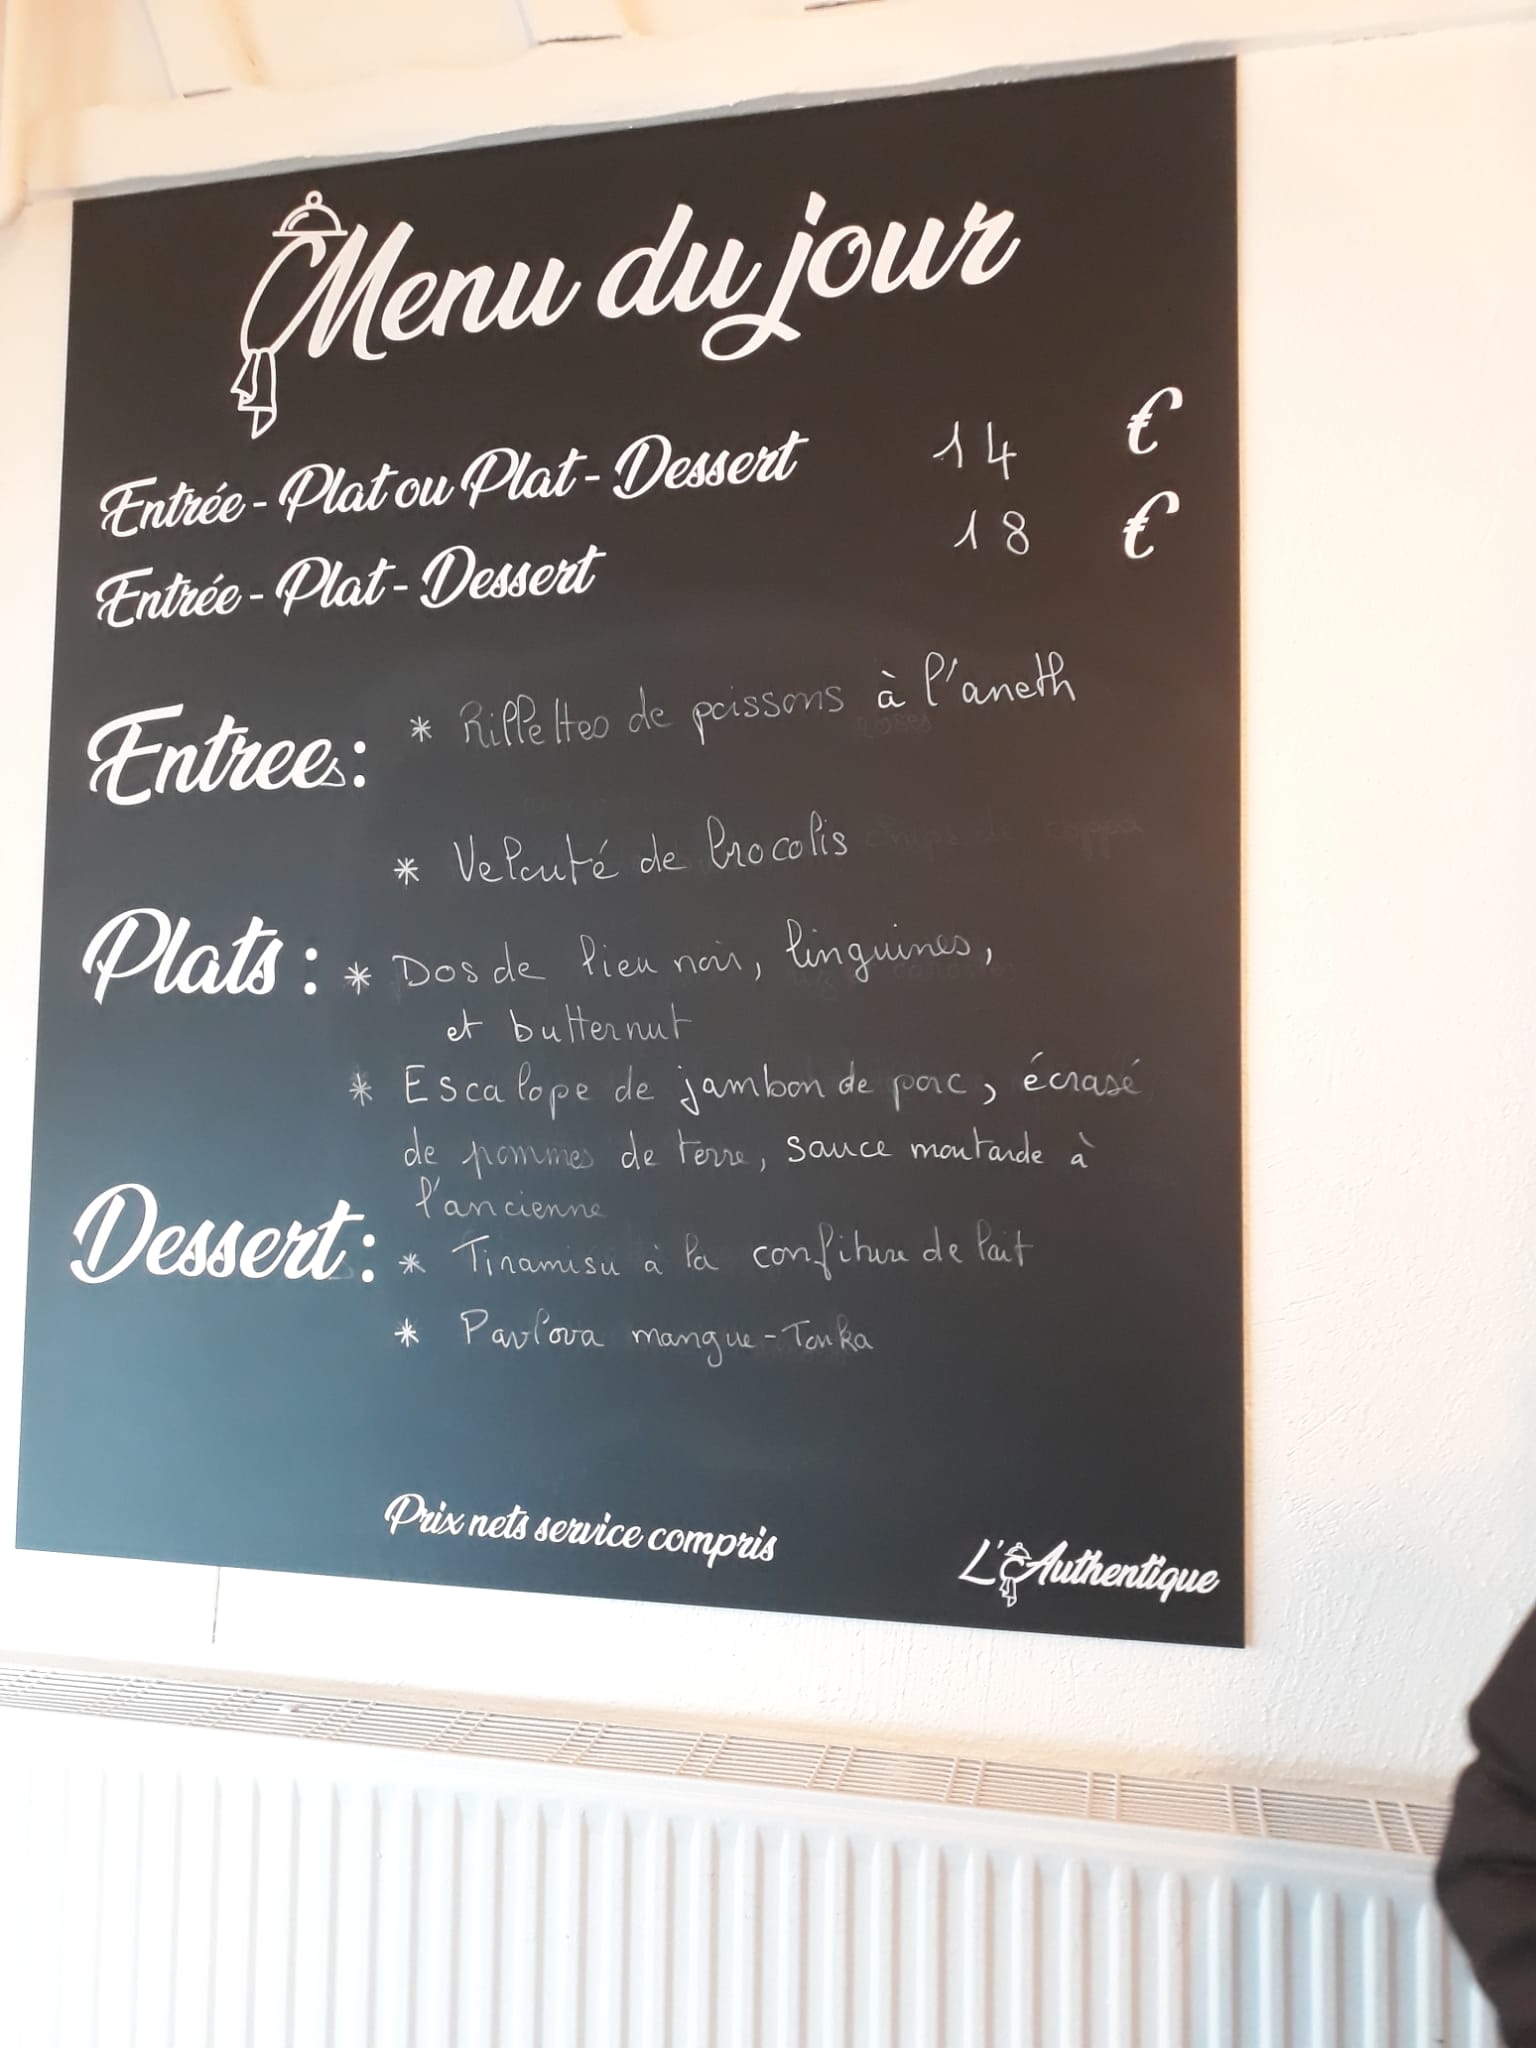 Menu du jour
Entrée - Plat ou Plat - Dessert 14 €
Entrée - Plat - Dessert 18 €
Entrees : * Rillettes de poissons à l'aneth
* Velouté de brocolis
Plats : * Dos de lieu noir, linguines,
et butternut
* Escalope de jambon de porc, écrasé
de pommes de terre, sauce moutarde à
l'ancienne
Desserts : * Tiramisu à la confiture de lait
* Pavlova mangue-Tonka
Prix nets service compris
L'Authentique